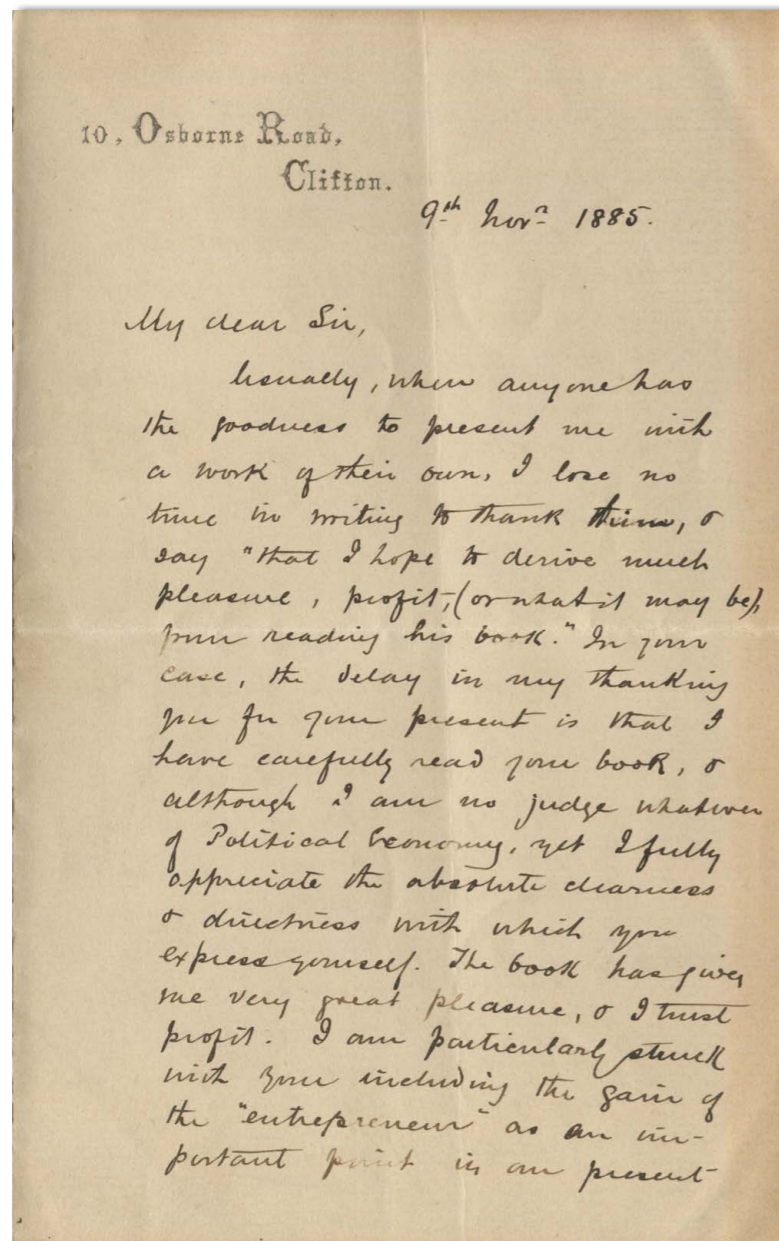 10, Osborne Road,
Clifton.
9th Novr 1885.
My dear Sir,
Usually, when anyone has
the goodness to present me with
a work of their own, I lose no
time in writing to thank them, &
say "that I hope to derive much
pleasure, profit, (or what it may be),
from reading his book." In your
case, the delay in my thanking
you for your present is that I
have carefully read your book, &
although I am no judge whatever
of Political Economy, yet I fully
appreciate the absolute clearness
& directness with which you
express yourself. The book has given
me very great pleasure, & I trust
profit. I am particularly struck
with your including the gain of
the "entrepreneur" as an im-
portant point in our present